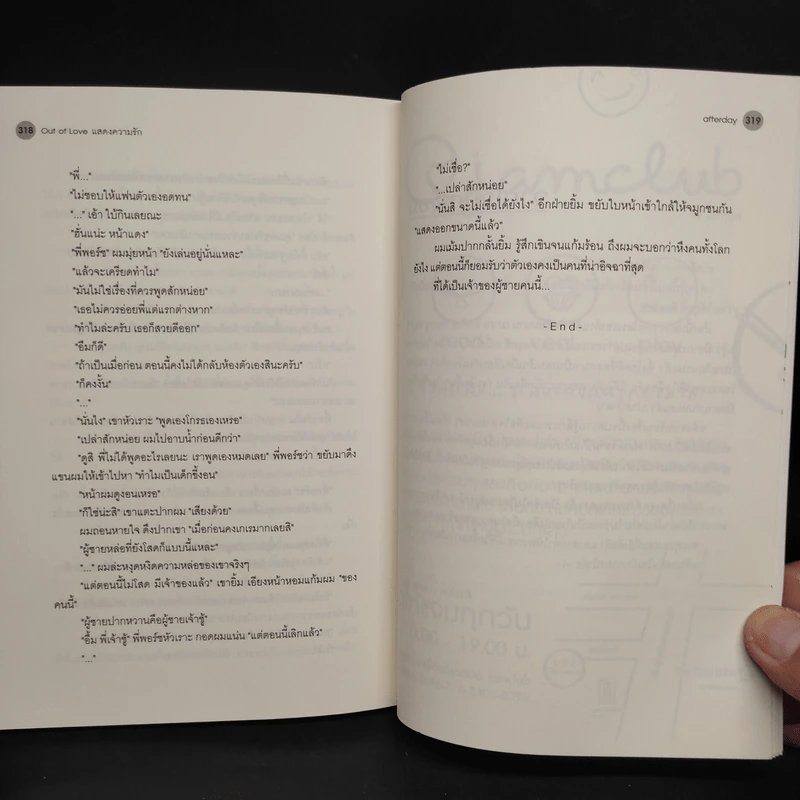 318 Out of Love แสดงความรัก
"พี่..."
"ไม่ชอบให้แฟนตัวเองอดทน"
"..." เอ้า ใบ้กินเลยณะ
"ฮั่นแน่ะ หน้าแดง"
"พี่พอร์ช" ผมมุ่ยหน้า "ยังเล่นอยู่นั่นแหละ"
"แล้วจะเครียดทำไม"
"มันไม่ใช่เรื่องที่ควรพูดสักหน่อย"
"เธอไม่ควรอ่อยพี่แต่แรกต่างหาก"
"ทำไมล่ะครับ เธอก็สวยดีออก"
"อืมก็ดี"
"ถ้าเป็นเมื่อก่อน ตอนนี้คงไม่ได้กลับห้องตัวเองสินะครับ"
"ก็คงงั้น"
"..."
"นั่นไง" เขาหัวเราะ "พูดเองโกรธเองเหรอ"
"เปล่าสักหน่อย ผมไปอาบน้ำก่อนดีกว่า"
"ดูสิ พี่ไม่ได้พูดอะไรเลยนะ เราพูดเองหมดเลย" พี่พอร์ชว่า ขยับมาดึง
แขนผมให้เข้าไปหา "ทำไมเป็นเด็กขี้งอน"
"หน้าผมดูงอนเหรอ"
"ก็ใช่น่ะสิ" เขาแตะปากผม "เสียงด้วย"
ผมถอนหายใจ ดึงปากเขา "เมื่อก่อนคงเกเรมากเลยสิ"
"ผู้ชายหล่อที่ยังโสดก็แบบนี้แหละ"
"..." ผมล่ะหงุดหงิดความหล่อของเขาจริงๆ
"แต่ตอนนี้ไม่โสด มีเจ้าของแล้ว" เขายิ้ม เอียงหน้าหอมแก้มผม "ของ
คนนี้"
"ผู้ชายปากหวานคือผู้ชายเจ้าชู้"
"อื้ม พี่เจ้าชู้" พี่พอร์ชหัวเราะ กอดผมแน่น "แต่ตอนนี้เลิกแล้ว"
"..."
afterday 319
"ไม่เชื่อ?"
"...เปล่าสักหน่อย"
"นั่นสิ จะไม่เชื่อได้ยังไง" อีกฝ่ายยิ้ม ขยับใบหน้าเข้าใกล้ให้จมูกชนกัน
"แสดงออกขนาดนี้แล้ว"
ผมเม้มปากกลั้นยิ้ม รู้สึกเขินจนแก้มร้อน ถึงผมจะบอกว่าหึงคนทั้งโลก
ยังไง แต่ตอนนี้ก็ยอมรับว่าตัวเองคงเป็นคนที่น่าอิจฉาที่สุด
ที่ได้เป็นเจ้าของผู้ชายคนนี้...
- E n d -